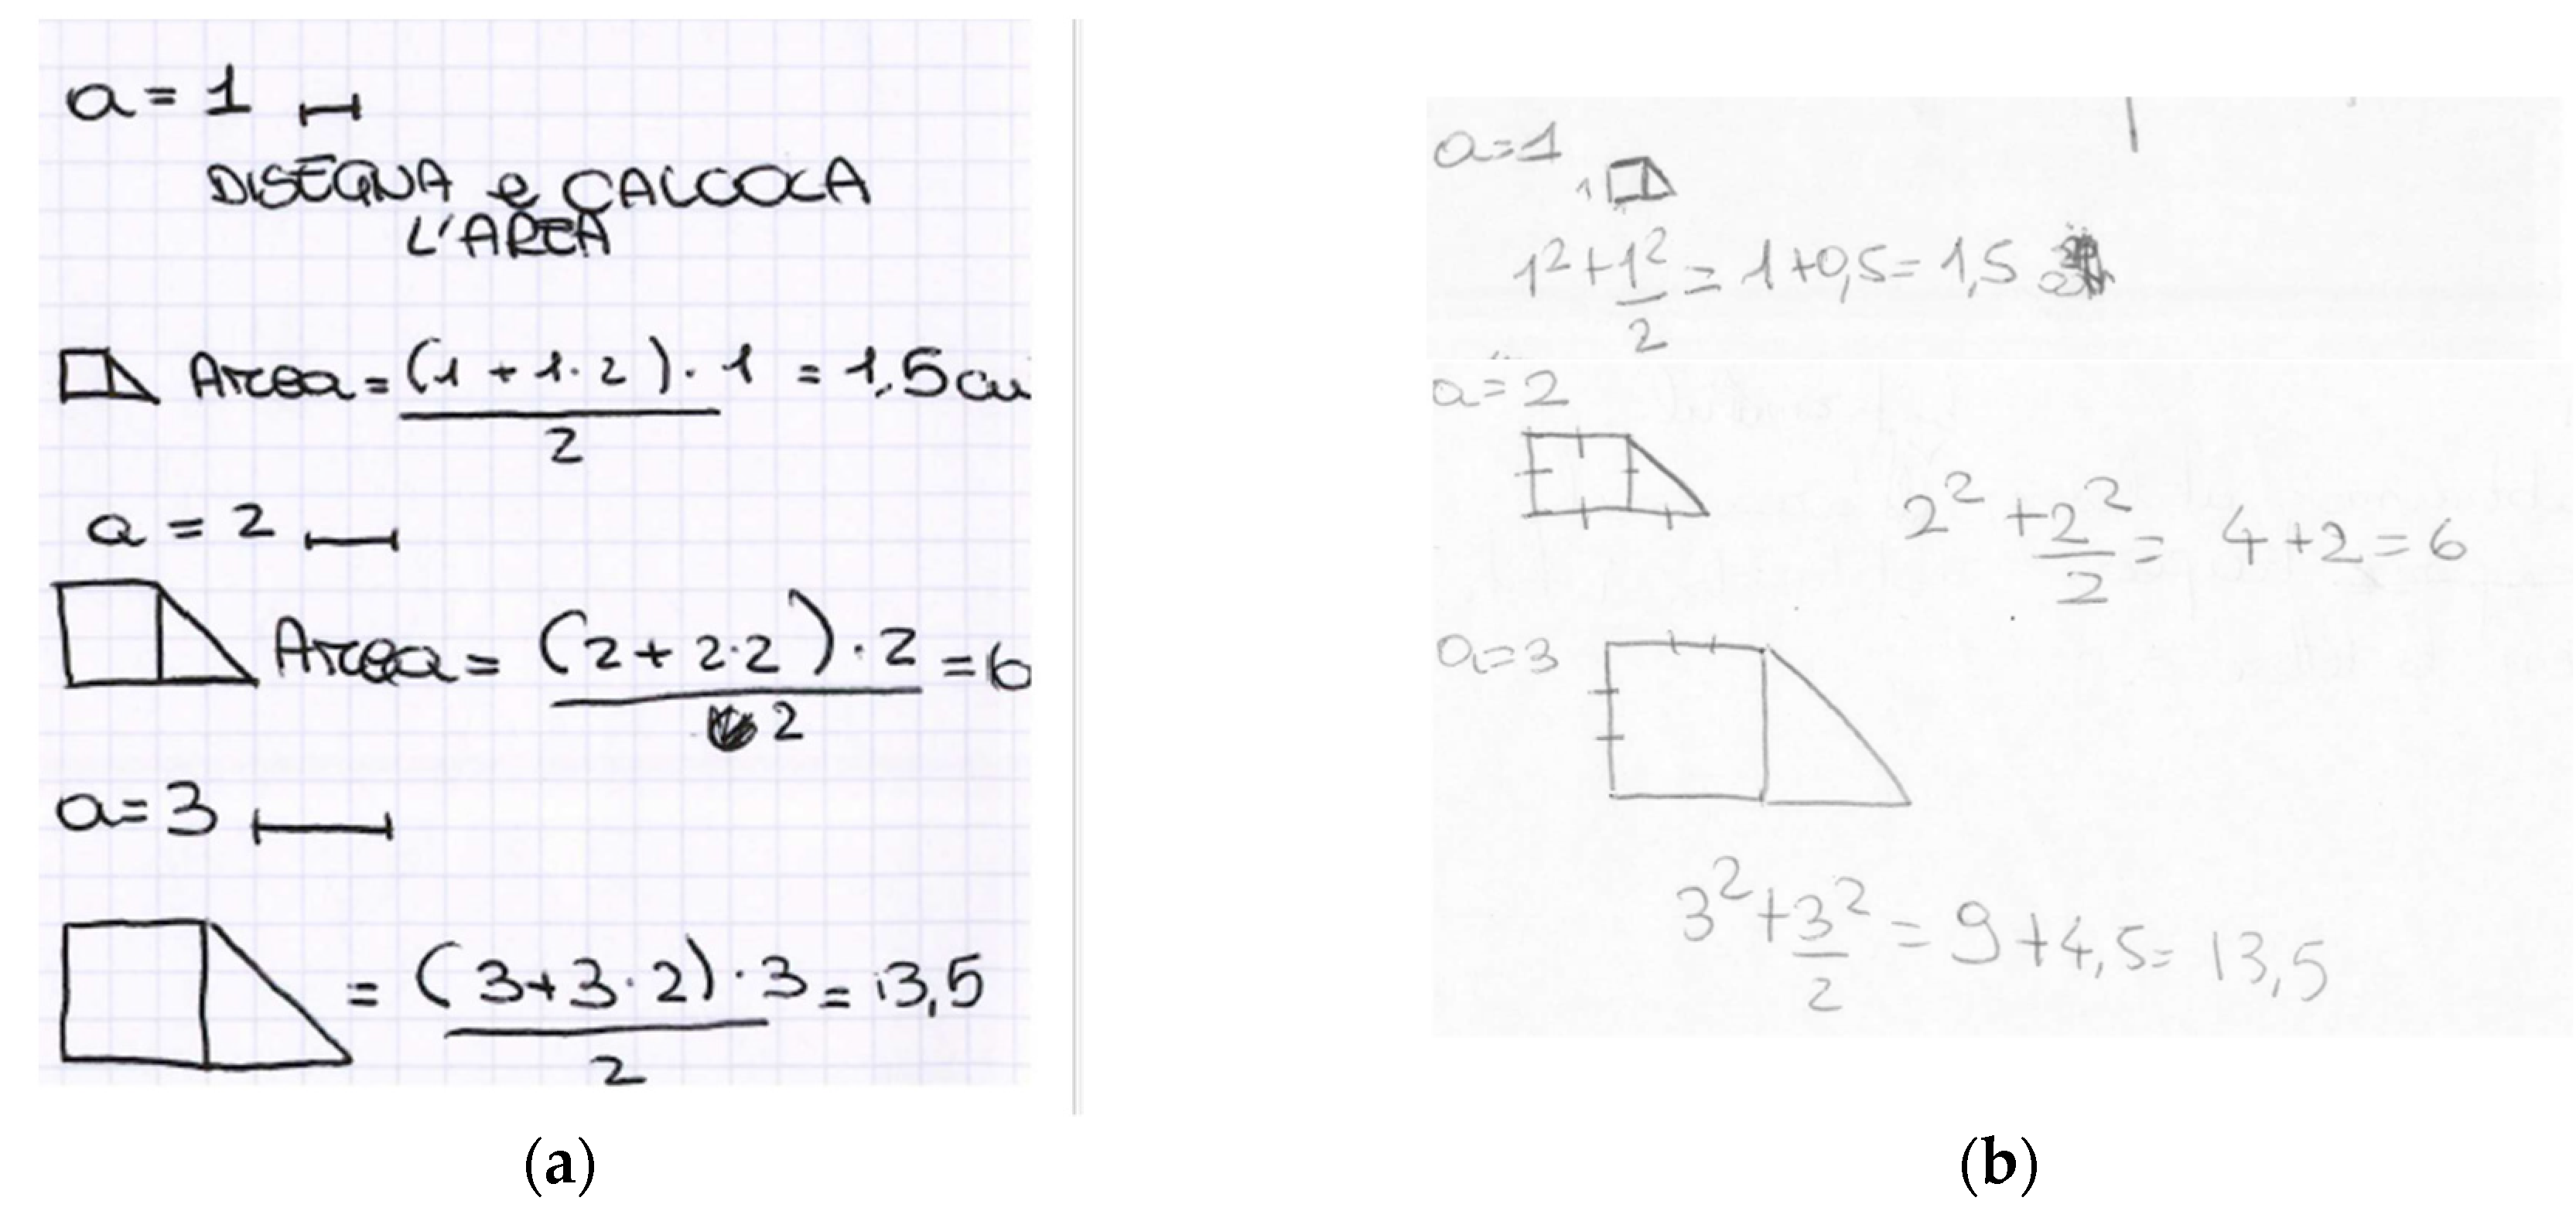 a = 1
DISEGNA e CALCOLA
L'AREA
Area = (1 + 1·2)·1 = 1,5 cm
2
a = 2
Area = (2 + 2·2)·2 = 6
2
a = 3
= (3+3·2)·3 = 13,5
2
(a)
a=1
1
1² + 1² = 1+0,5 = 1,5
2
a=2
2² + 2² = 4+2 = 6
2
a=3
3² + 3² = 9+4,5 = 13,5
2
(b)